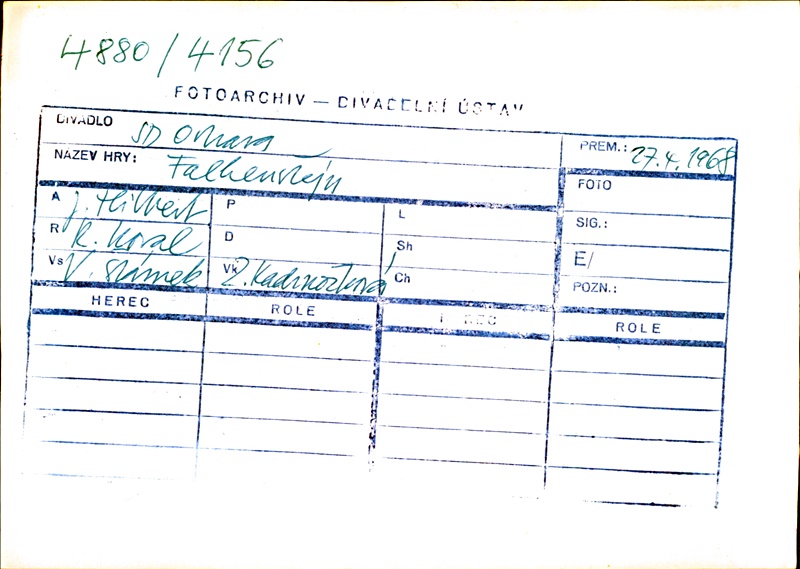 4880/4156
FOTOARCHIV — DIVADELNÍ ÚSTAV
DIVADLO SD Ostrava
PREM.: 27.4.1968
NÁZEV HRY: Falkenštejn
FOTO
A J. Hilbert
P
L
SIG.:
R K. Koval
D
Sh
E/
Vs V. Šrámek
Vk Z. Kadrnožková
Ch
POZN.:
HEREC ROLE HEREC ROLE